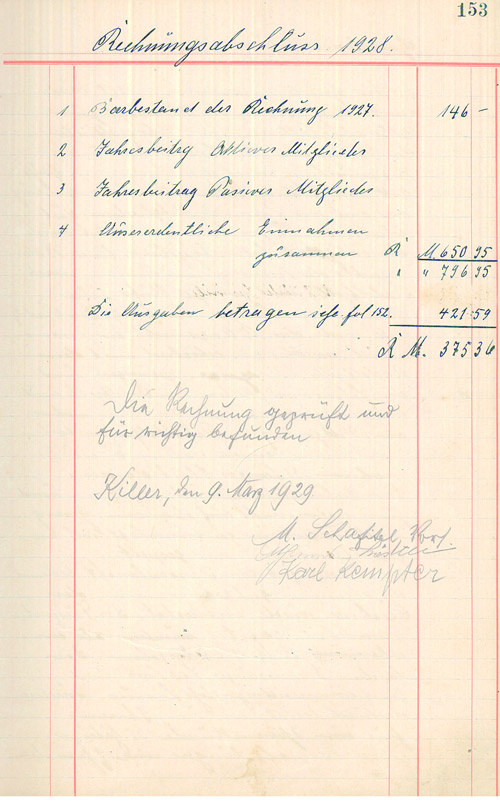 153
Rechnungsabschluss 1928.
1 Barbestand der Rechnung 1927. 146 –
2 Jahresbeitrg Aktiever Mitglieder
3 Jahresbeitrag Pasiever Mitglieder
4 Ausserordentliche Einnahmen
zusammen R M. 650 95
" " 796 95
Die Ausgaben betragen sihe fol 152. 421 59
R M. 375 36
Die Rechnung geprüft und
für richtig befunden
Killer, den 9. März 1929.
M. Schaftel, Vors.
Karl Kempter